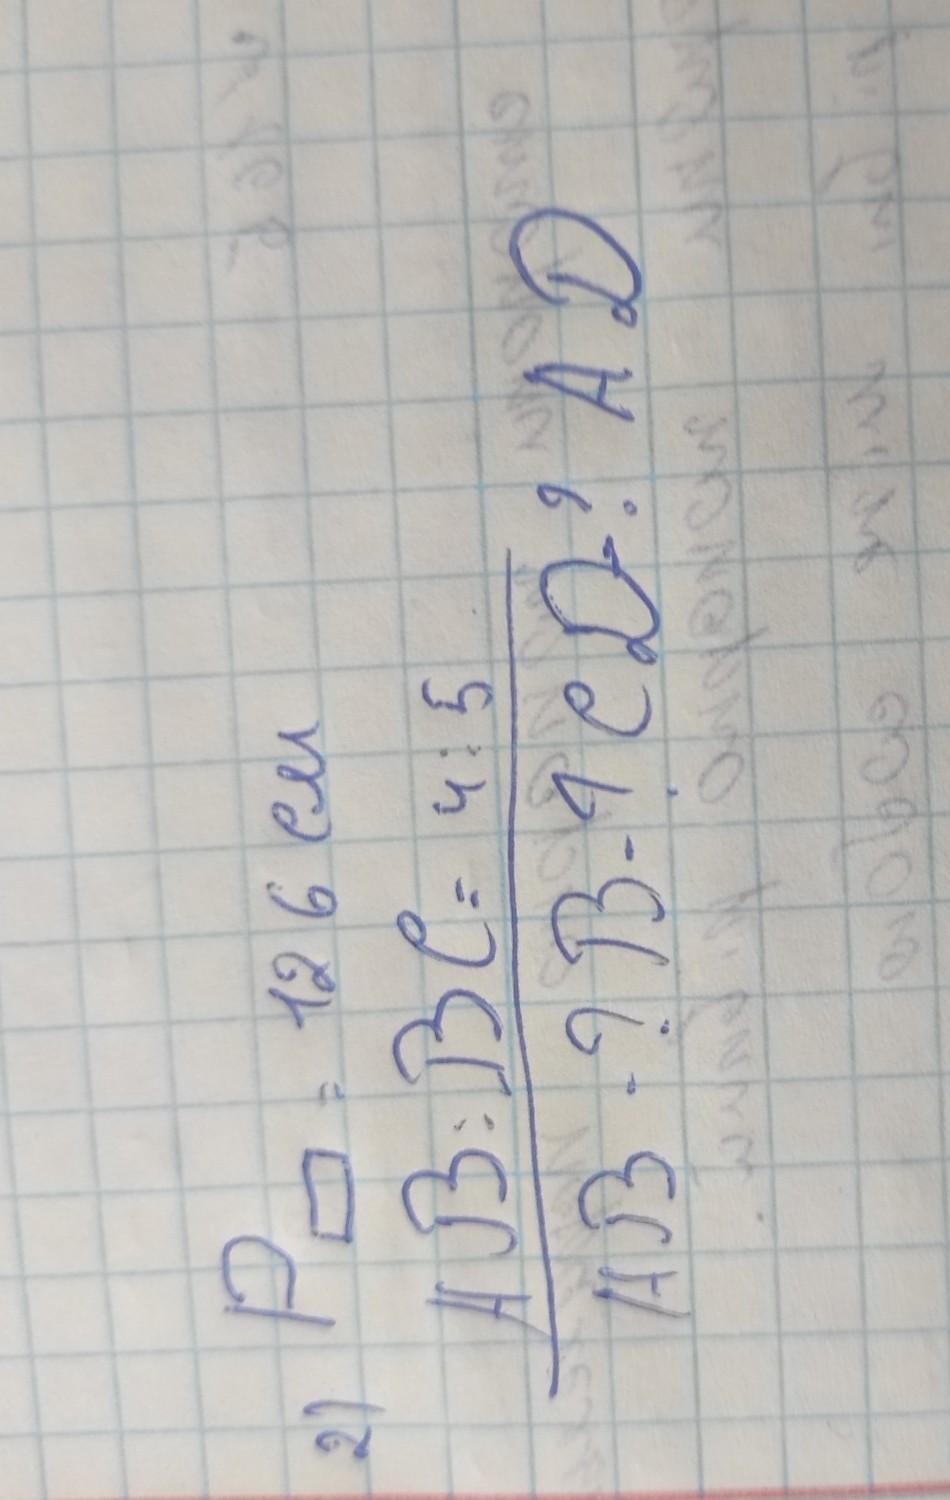 2) P▭ = 126 см
AB : BC = 4 : 5
AB - ? B - ? CD ? AD